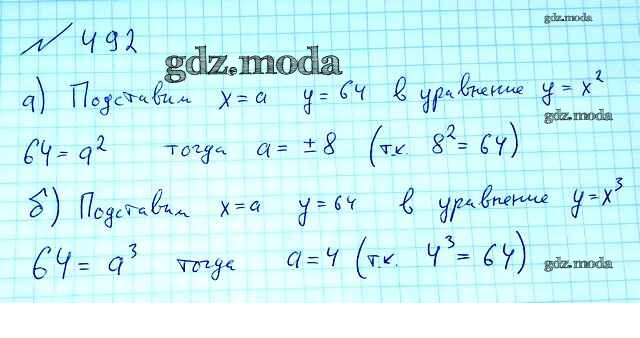 № 492
gdz.moda
gdz.moda
а) Подставим x = a y = 64 в уравнение y = x²
gdz.moda
64 = a² тогда a = ±8 (т.к. 8² = 64)
б) Подставим x = a y = 64 в уравнение y = x³
64 = a³ тогда a = 4 (т.к. 4³ = 64)
gdz.moda